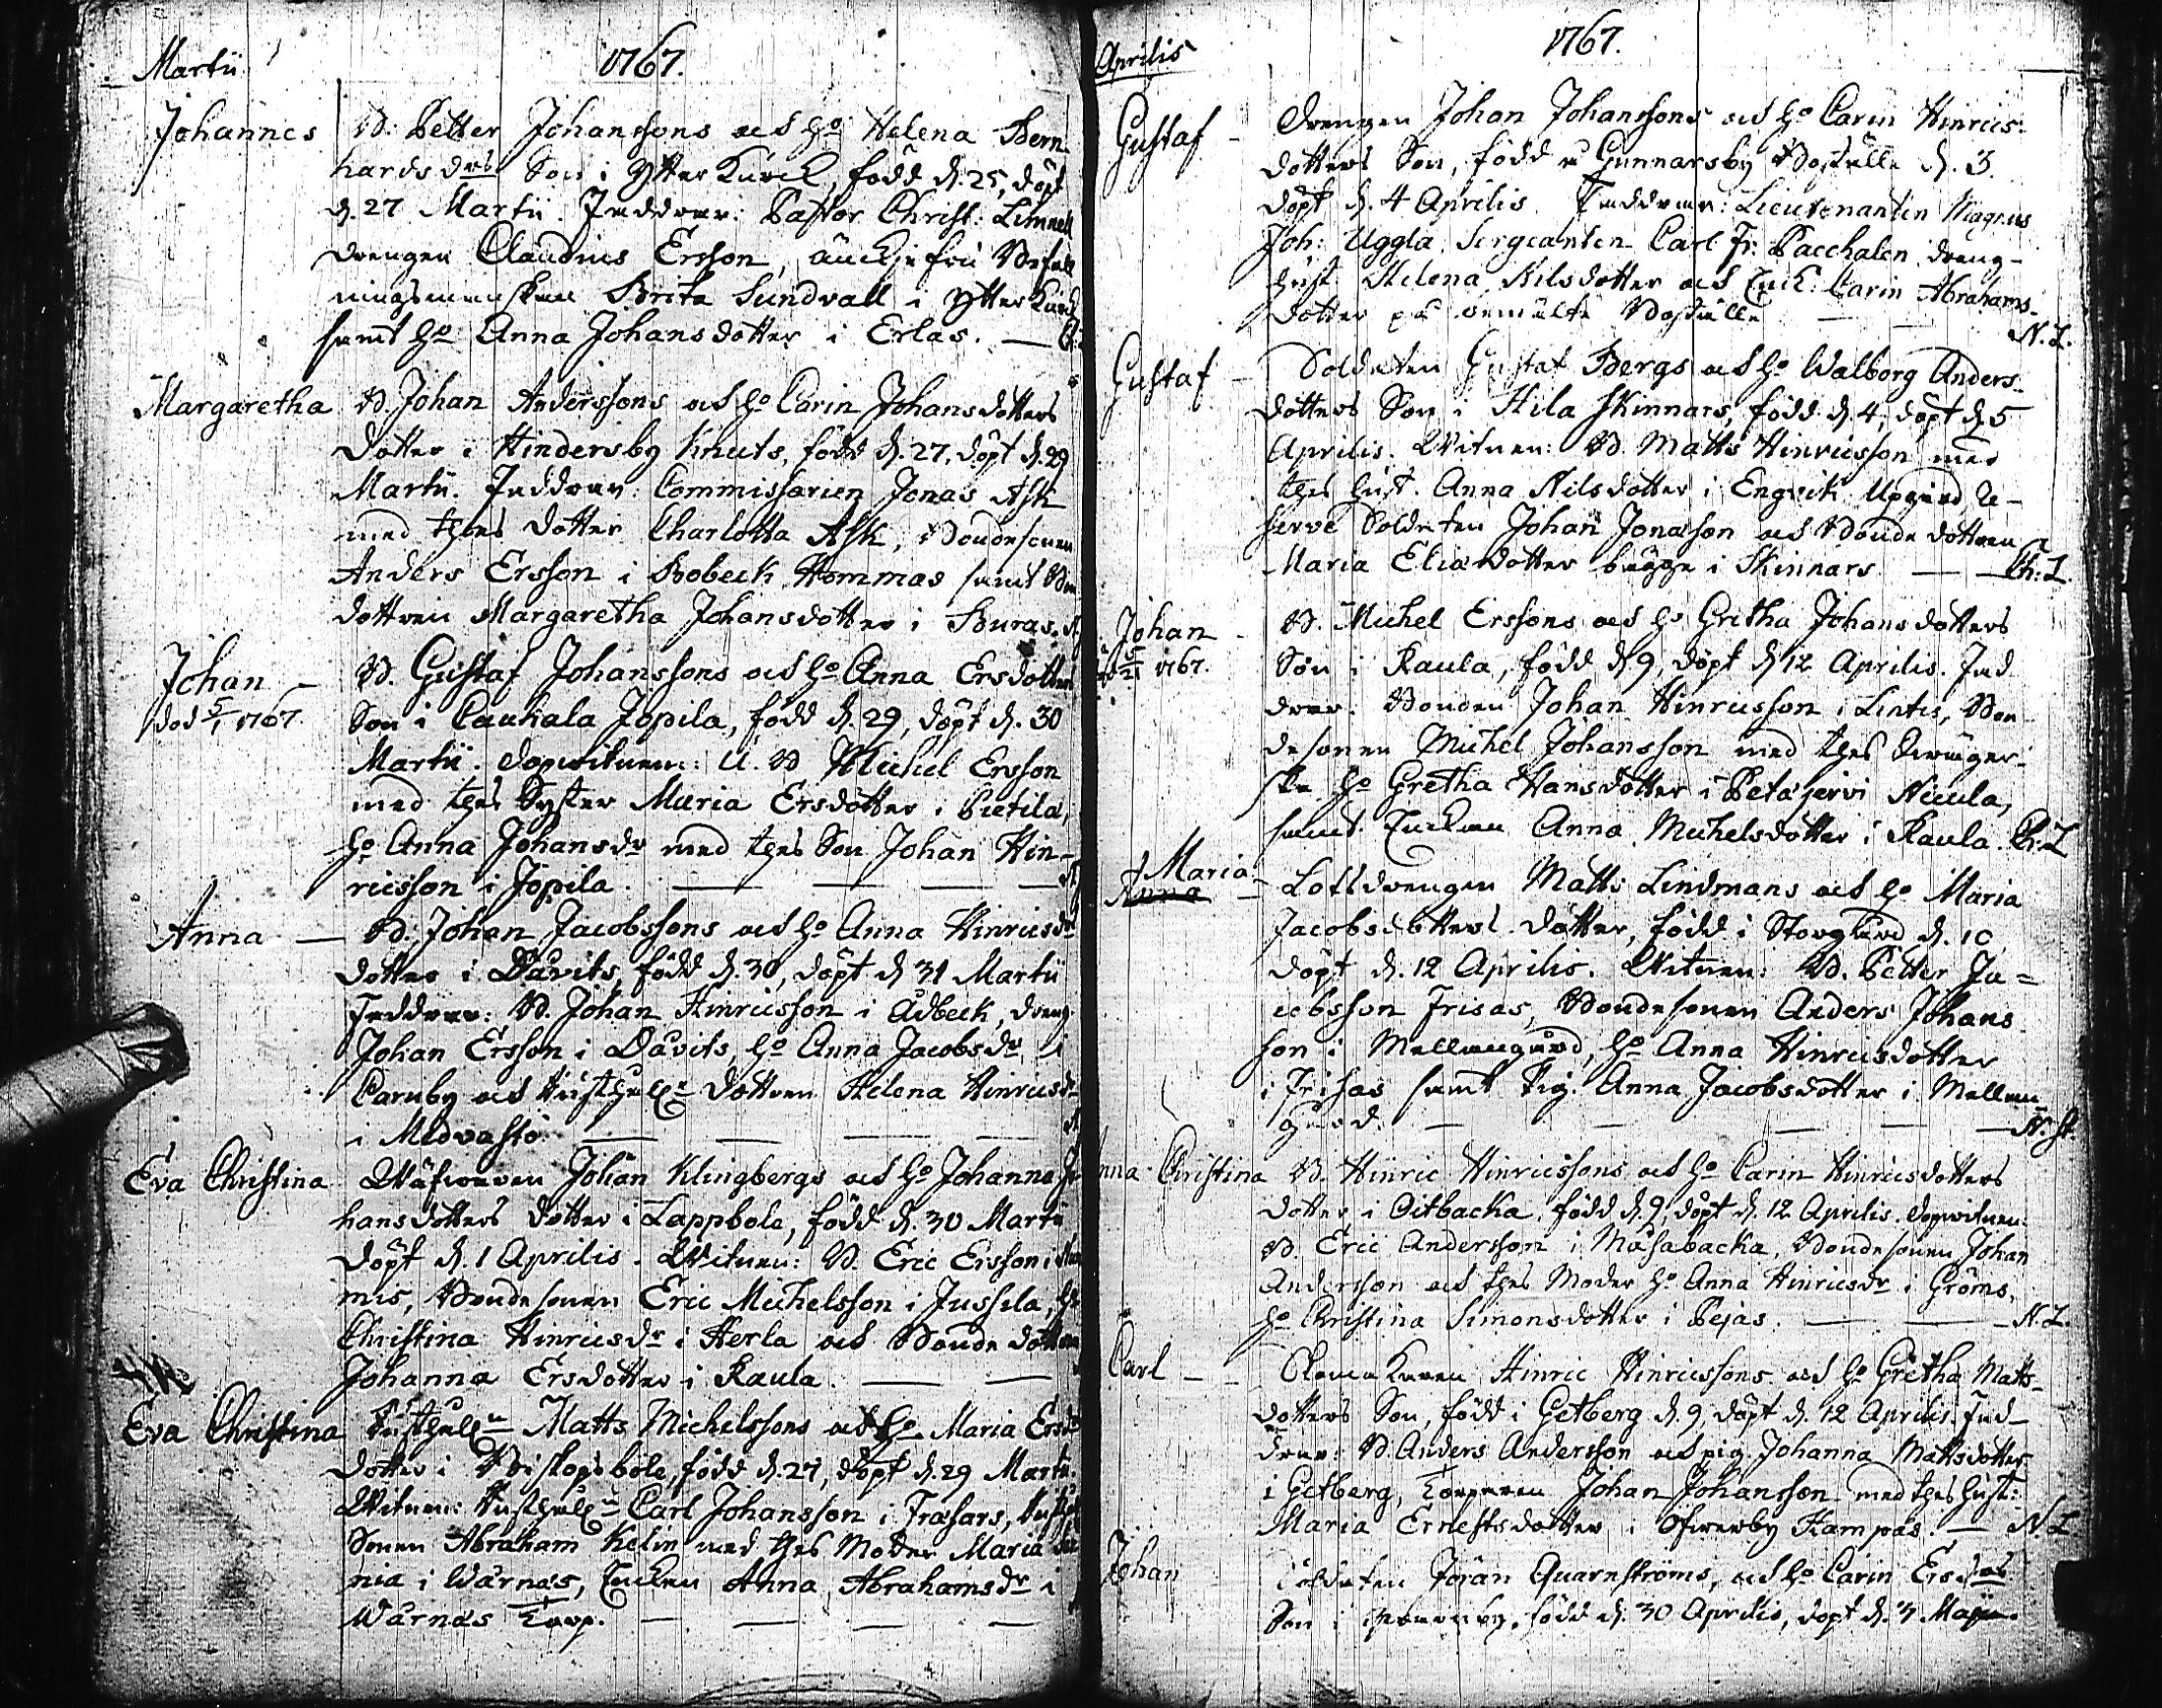 Martii
1767.
Johannes B. Petter Johanssons och H:o Helena Bern-
hardsd:rs Son i Ytter Kurck, född d. 25, döpt
d. 27 Martii. Faddrar: Pastor Christ: Limnell
drengen Claudius Ersson, änckje fru Befall
ningsmanskan Brita Sundvall i Ytter Kurck
samt H:o Anna Johansdotter i Erlas.
Margaretha B. Johan Anderssons och H:o Carin Johansdotters
Dotter i Hindersby Knuts, född d. 27, döpt d. 29
Martii. Faddrar: Commissarien Jonas Ask
med thes dotter Charlotta Ask, Bondesonen
Anders Ersson i Bobeck Hommas samt Bon
dottren Margaretha Johansdotter i Buras.
Johan B. Gustaf Johanssons och H:o Anna Ersdotters
död 5/1 1767. Son i Caukala Jopila, född d. 29, döpt d. 30
Martii. dopwitnen: U. B Michel Ersson
med thes Syster Maria Ersdotter i Pietila,
H:o Anna Johansd:r med thes Son Johan Hin-
ricsson i Jopila.
Anna B. Johan Jacobssons och H:o Anna Hinricsd:r
dotter i Davits, född d. 30, döpt d 31 Martii
Faddrar: B. Johan Hinricsson i Adbeck, dreng
Johan Ersson i Davits, H:o Anna Jacobsd:r i
Carnby och Rusthåll:r Dottren Helena Hinricsd:r
i Medvastö.
Eva Christina Wäfwaren Johan Klingbergs och H:o Johanna Jo
hansdotters dotter i Lappböle, född d. 30 Martii
döpt d. 1 Aprilis. Witnen: B. Eric Ersson i
mis, Bondesonen Eric Michelsson i Jussila, H:o
Christina Hinricsd:r i Herla och Bonde dottren
Johanna Ersdotter i Kaula.
Eva Christina Rusthåll:n Matts Michelssons och H:o Maria Ersd:r
dotter i Biskopsböle, född d. 27, döpt d. 29 Martii.
Witnen: Rusthåll:n Carl Johansson i Frasars, Rusthåll
Sonen Abraham Kelin med thes Moder Maria
nia i Wärnäs, Enckan Anna Abrahamsd:r i
Wärnäs Torp.
Aprilis
1767.
Gustaf Drengen Johan Johanssons och H:o Carin Hinrics-
dotters Son, född å Gunnarsby Boställe d. 3.
döpt d. 4 Aprilis. Faddrar: Lieutenanten Magnus
Joh: Uggla, Sergeanten Carl Fr: Pacchalen, dreng-
hust. Helena Nilsdotter och Enck: Carin Abrahams-
dotter på bemälte Boställe N. L.
Gustaf Soldaten Gustaf Bergs och H:o Walborg Anders-
dotters Son i Hila Skinnars, född d. 4, döpt d. 5
Aprilis. Witnen: B. Matts Hinricsson med
thes hust. Anna Nilsdotter i Engvik Upgård, Re-
serve Soldaten Johan Jonasson och Bonde dottren
Maria Eliædotter bägge i Skinnars Ch: L.
Johan B. Michel Erssons och H:o Gretha Johansdotters
1767. Son i Kaula, född d 9, döpt d 12 Aprilis. Fad
drar. Bonden Johan Hinricsson i Lintis, Bon
desonen Michel Johansson med thes Swäger-
ska H:o Gretha Hansdotter i Petäjervi Nicula,
samt Enckan Anna Michelsdotter i Kaula. Ch: L
Maria
Anna Lotsdrengen Matts Lindmans och H:o Maria
Jacobsdotters dotter, född i Storgård d. 10
döpt d. 12 Aprilis. Witnen: B. Petter Ja=
cobsson Frisas, Bondesonen Anders Johans
son i Mellangård, H:o Anna Hinricsdotter
i Frisas samt Pig. Anna Jacobsdotter i Mellan-
gård. N. St.
nna Christina B. Hinric Hinricssons och H:o Carin Hinricsdotters
dotter i Oitbacka, född d. 9, döpt d. 12 Aprilis. dopwitnen:
B. Eric Andersson i Måsabacka, Bondesonen Johan
Andersson och thes Moder H:o Anna Hinricsd:r i Gröms,
H:o Christina Simonsdotter i Pejas. N. L.
Carl Hinric Hinricssons och H:o Gretha Matts-
dotters Son, född i Getberg d. 9, döpt d. 12 Aprilis. Fad-
drar: B. Anders Andersson och pig. Johanna Mattsdotter
i Getberg, Torparen Johan Johansson med thes hust:
Maria Ernestsdotter i Öfwerby Kampas. N L
Johan Soldaten Jöran Quarnströms, och H:o Carin Ersd:rs
Son i född d. 30 Aprilis, döpt d. 3 Maji.